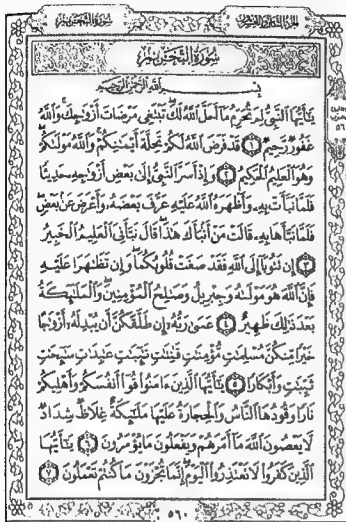 سُورَةُ التَّحْرِيمِ
الجُزْءُ الثَّامِنُ وَالعِشْرُونَ
سُورَةُ التَّحْرِيمِ
بِسْمِ اللَّهِ الرَّحْمَٰنِ الرَّحِيمِ
يَٰٓأَيُّهَا ٱلنَّبِيُّ لِمَ تُحَرِّمُ مَآ أَحَلَّ ٱللَّهُ لَكَۖ تَبۡتَغِي مَرۡضَاتَ أَزۡوَٰجِكَۚ وَٱللَّهُ
غَفُورٞ رَّحِيمٞ ١ قَدۡ فَرَضَ ٱللَّهُ لَكُمۡ تَحِلَّةَ أَيۡمَٰنِكُمۡۚ وَٱللَّهُ مَوۡلَىٰكُمۡۖ
وَهُوَ ٱلۡعَلِيمُ ٱلۡحَكِيمُ ٢ وَإِذۡ أَسَرَّ ٱلنَّبِيُّ إِلَىٰ بَعۡضِ أَزۡوَٰجِهِۦ حَدِيثٗا
فَلَمَّا نَبَّأَتۡ بِهِۦ وَأَظۡهَرَهُ ٱللَّهُ عَلَيۡهِ عَرَّفَ بَعۡضَهُۥ وَأَعۡرَضَ عَنۢ بَعۡضٖۖ
فَلَمَّا نَبَّأَهَا بِهِۦ قَالَتۡ مَنۡ أَنۢبَأَكَ هَٰذَاۖ قَالَ نَبَّأَنِيَ ٱلۡعَلِيمُ ٱلۡخَبِيرُ
٣ إِن تَتُوبَآ إِلَى ٱللَّهِ فَقَدۡ صَغَتۡ قُلُوبُكُمَاۖ وَإِن تَظَٰهَرَا عَلَيۡهِ
فَإِنَّ ٱللَّهَ هُوَ مَوۡلَىٰهُ وَجِبۡرِيلُ وَصَٰلِحُ ٱلۡمُؤۡمِنِينَۖ وَٱلۡمَلَٰٓئِكَةُ
بَعۡدَ ذَٰلِكَ ظَهِيرٌ ٤ عَسَىٰ رَبُّهُۥٓ إِن طَلَّقَكُنَّ أَن يُبۡدِلَهُۥٓ أَزۡوَٰجًا
خَيۡرٗا مِّنكُنَّ مُسۡلِمَٰتٖ مُّؤۡمِنَٰتٖ قَٰنِتَٰتٖ تَٰٓئِبَٰتٍ عَٰبِدَٰتٖ سَٰٓئِحَٰتٖ
ثَيِّبَٰتٖ وَأَبۡكَارٗا ٥ يَٰٓأَيُّهَا ٱلَّذِينَ ءَامَنُواْ قُوٓاْ أَنفُسَكُمۡ وَأَهۡلِيكُمۡ
نَارٗا وَقُودُهَا ٱلنَّاسُ وَٱلۡحِجَارَةُ عَلَيۡهَا مَلَٰٓئِكَةٌ غِلَاظٞ شِدَادٞ
لَّا يَعۡصُونَ ٱللَّهَ مَآ أَمَرَهُمۡ وَيَفۡعَلُونَ مَا يُؤۡمَرُونَ ٦ يَٰٓأَيُّهَا
ٱلَّذِينَ كَفَرُواْ لَا تَعۡتَذِرُواْ ٱلۡيَوۡمَۖ إِنَّمَا تُجۡزَوۡنَ مَا كُنتُمۡ تَعۡمَلُونَ ٧
٥٦٠